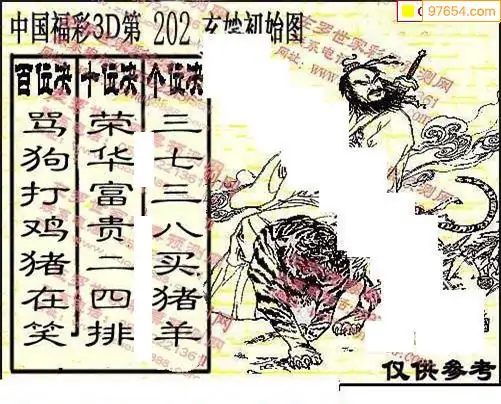 97654.com
中国福彩3D第 202 玄妙初始图
百位决 十位决 个位决
骂狗打鸡猪在笑
荣华富贵二四排
三七三八买猪羊
仅供参考